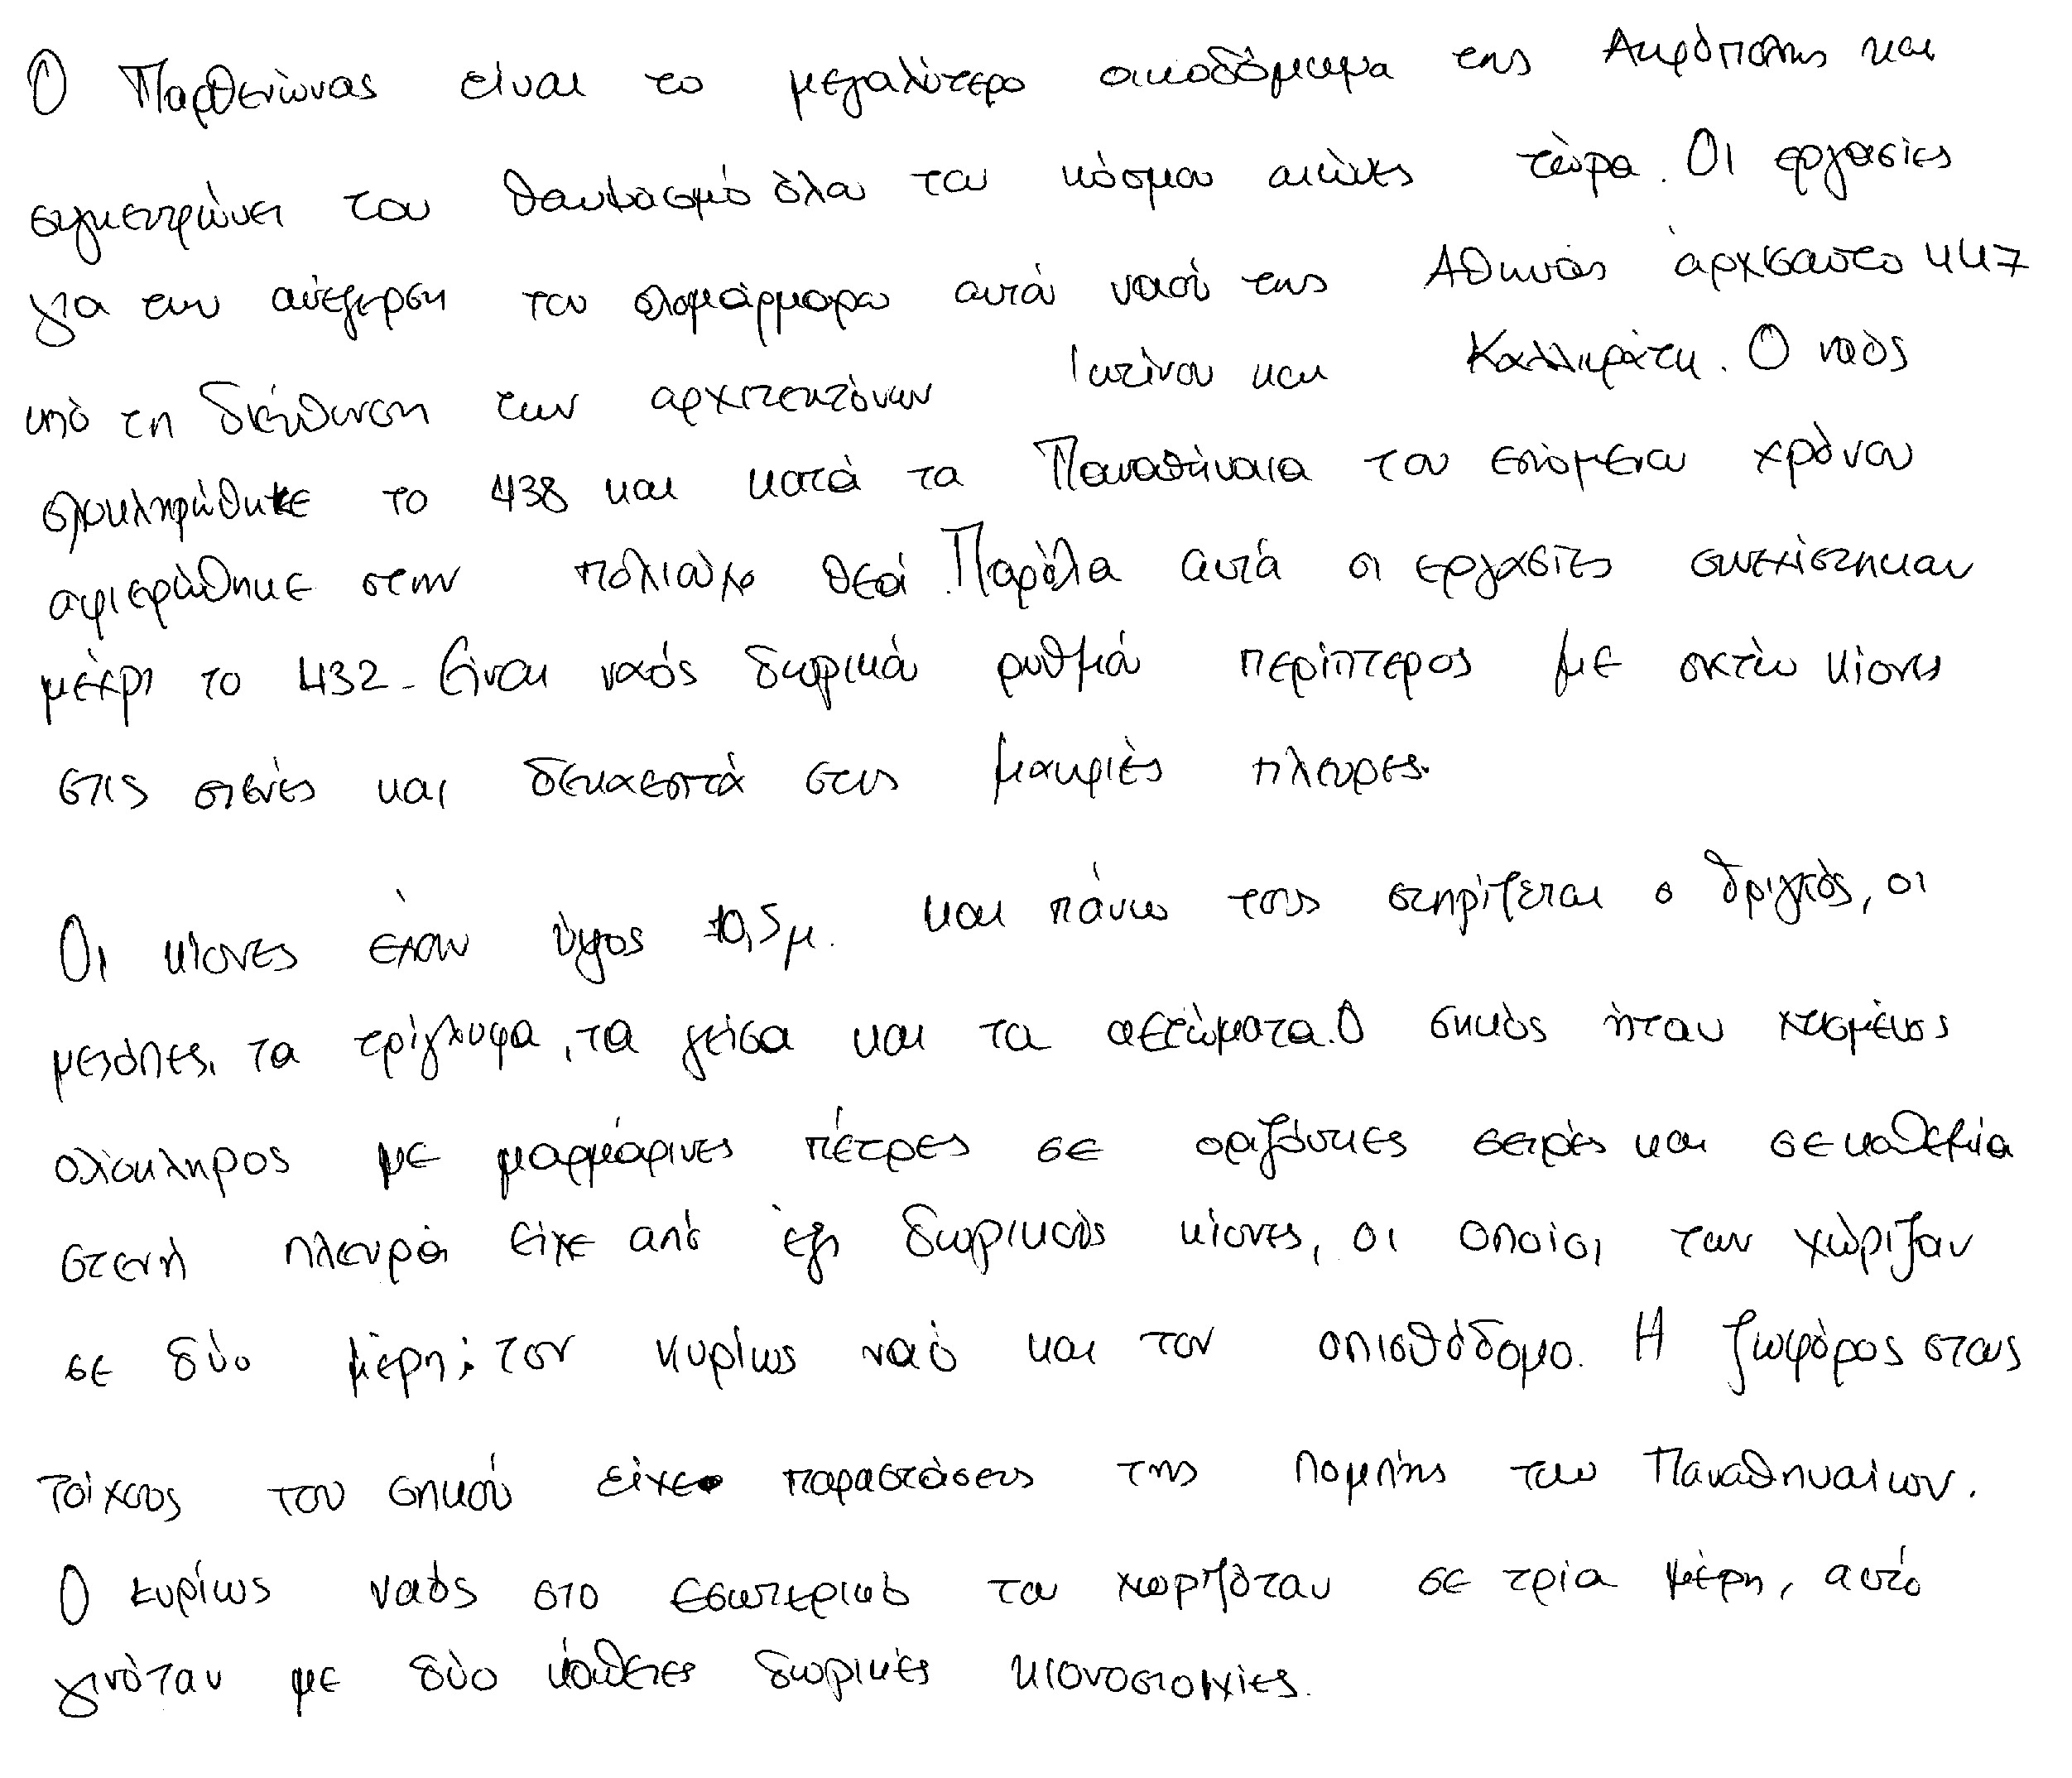 Ο Παρθενώνας είναι το μεγαλύτερο οικοδόμημα της Ακρόπολης και
συγκεντρώνει τον θαυμασμό όλου του κόσμου αιώνες τώρα. Οι εργασίες
για την ανέγερση του ολομάρμαρου αυτού ναού της Αθηνάς άρχισαν το 447
υπό τη διεύθυνση των αρχιτεκτόνων Ικτίνου και Καλλικράτη. Ο ναός
ολοκληρώθηκε το 438 και κατά τα Παναθήναια του επόμενου χρόνου
αφιερώθηκε στην πολιούχο θεά. Παρόλα αυτά οι εργασίες συνεχίστηκαν
μέχρι το 432. Είναι ναός δωρικού ρυθμού περίπτερος με οκτώ κίονες
στις στενές και δεκαεπτά στις μακριές πλευρες.
Οι κίονες έχουν ύψος 10,5μ. και πάνω τους στηρίζεται ο θριγκός, οι
μετόπες, τα τρίγλυφα, τα γείσα και τα αετώματα. Ο σηκός ήταν χτισμένος
ολόκληρος με μαρμάρινες πέτρες σε οριζόντιες σειρές και σε καθεμία
στενή πλευρά είχε από έξι δωρικούς κίονες, οι οποίοι τον χώριζαν
σε δύο μέρη: τον κυρίως ναό και τον οπισθόδομο. Η ζωφόρος στους
τοίχους του σηκού είχε παραστάσεις της πομπής των Παναθηναίων.
Ο κυρίως ναός στο εσωτερικό του χωριζόταν σε τρία μέρη, αυτό
γινόταν με δύο κάθετες δωρικές κιονοστοιχίες.